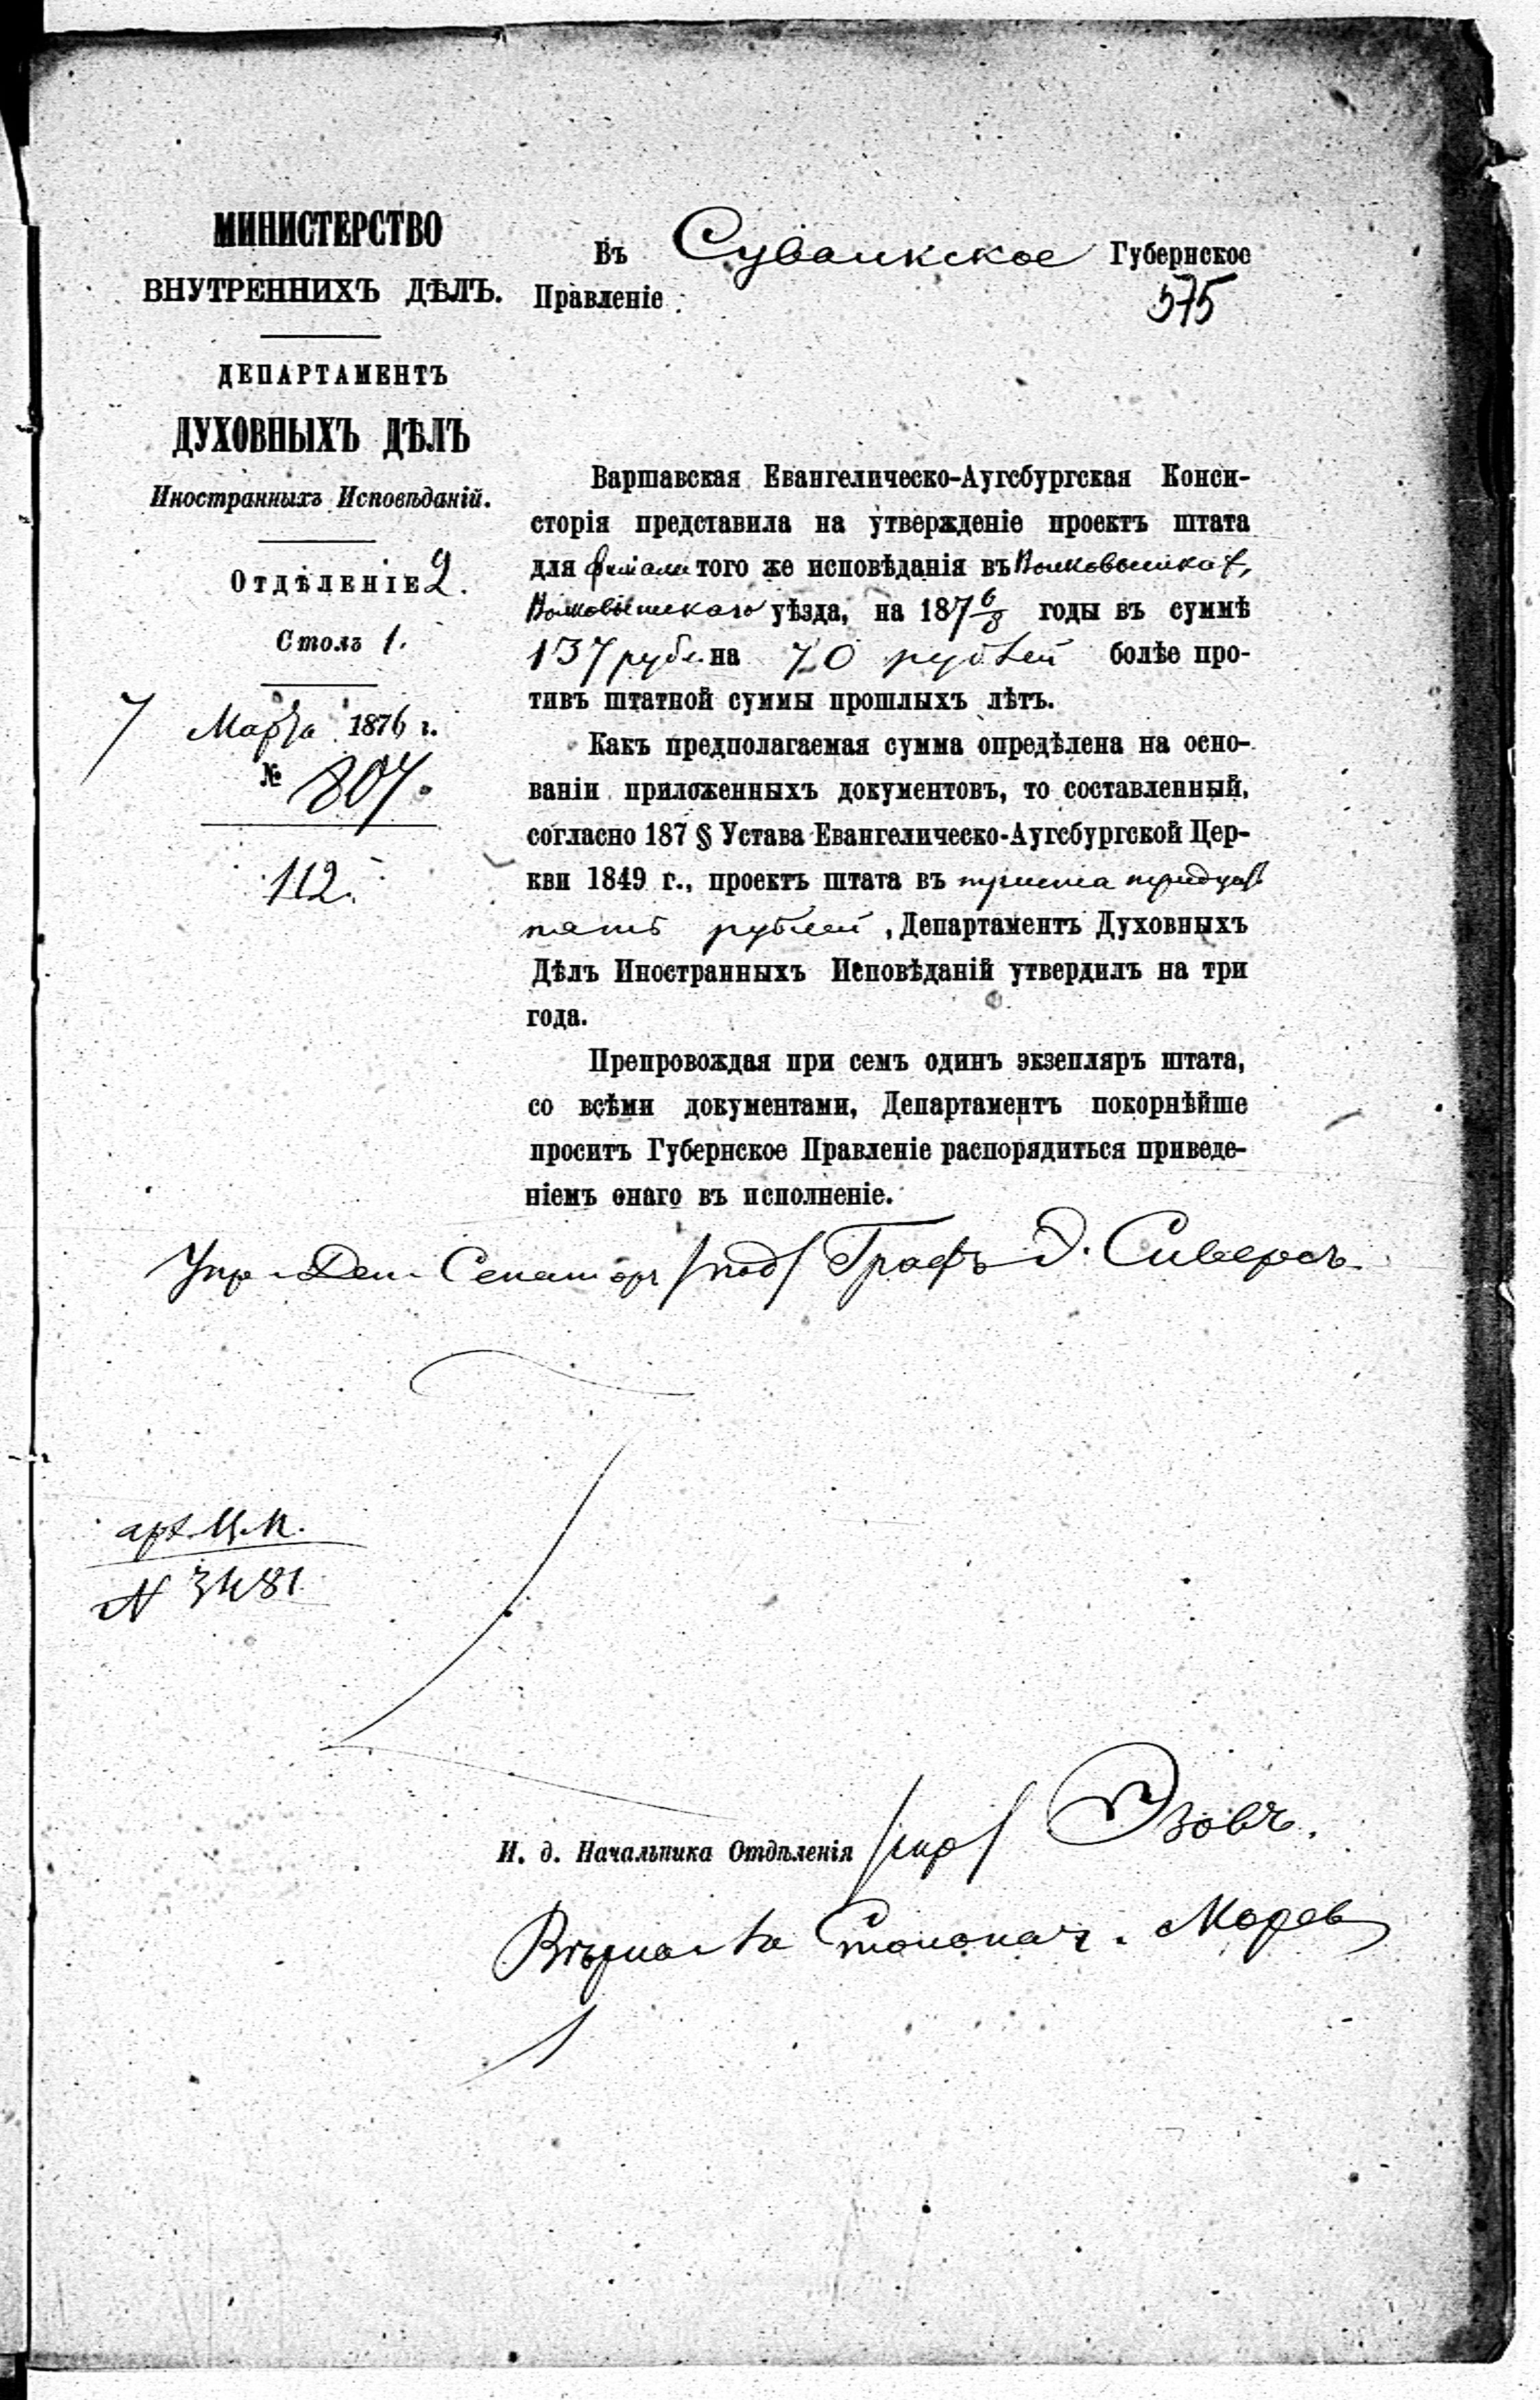 МИНИСТЕРСТВО
ВНУТРЕННИХЪ ДѢЛЪ.
ДЕПАРТАМЕНТЪ
ДУХОВНЫХЪ ДѢЛЪ
Иностранныхъ Исповѣданій.
Отдѣленіе 2.
Столъ 1.
7 Марта 1876 г.
№ 807.
112.
Въ Сувалкское Губернское
575
Правленіе:
Варшавская Евангелическо-Аугсбургская Конси-
сторія представила на утвержденіе проектъ штата
для филіала того же исповѣданія въ Волковышкахъ,
Волковышскаго уѣзда, на 187 6/8 годы въ суммѣ
137 рубл. на 70 рублей болѣе про-
тивъ штатной суммы прошлыхъ лѣтъ.
Какъ предполагаемая сумма опредѣлена на осно-
ваніи приложенныхъ документовъ, то составленный,
согласно 187 § Устава Евангелическо-Аугсбургской Цер-
кви 1849 г., проектъ штата въ триста тридцать
пять рублей, Департаментъ Духовныхъ
Дѣлъ Иностранныхъ Исповѣданій утвердилъ на три
года.
Препровождая при семъ одинъ экзепляръ штата,
со всѣми документами, Департаментъ покорнѣйше
проситъ Губернское Правленіе распорядиться приведе-
ніемъ онаго въ исполненіе.
Упр. Деп. Сенаторъ /под/ Графъ Э. Сиверсъ
арх. Ц. К.
N 3481
И. д. Начальника Отдѣленія /скр/ Эзовъ.
Вѣрно: За Столонач. Морев